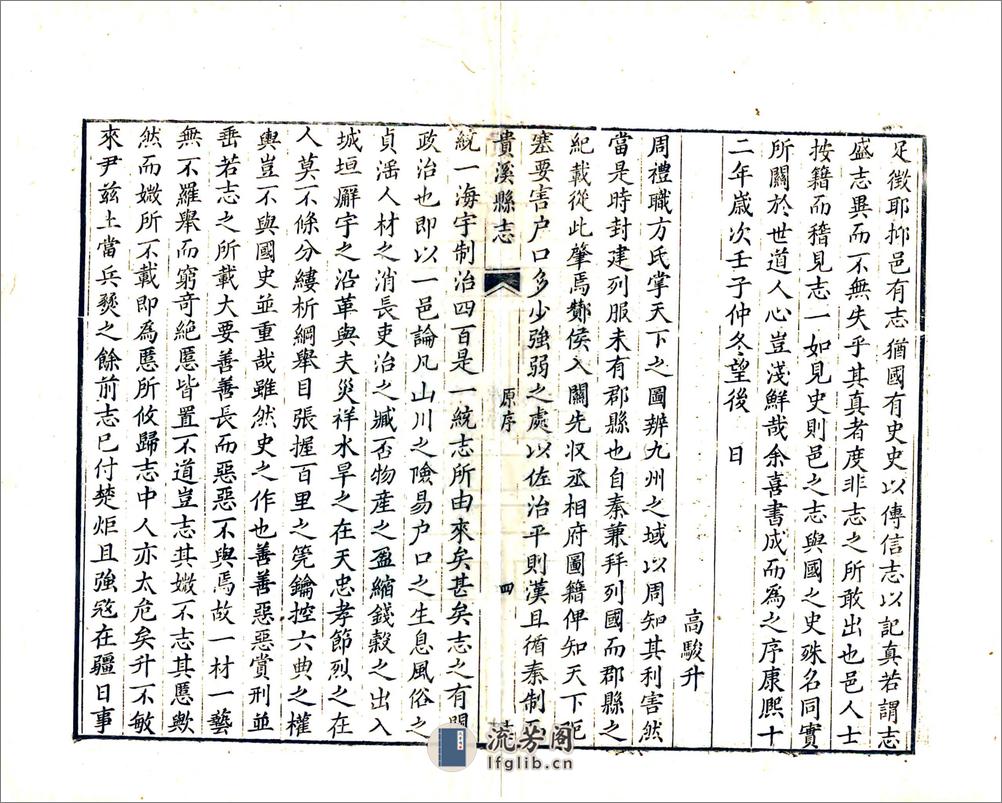 足徵耶抑邑有志猶國有史史以傳信志以記真若謂志
盛志異而不無失乎其真者度非志之所敢出也邑人士
按籍而稽見志一如見史則邑之志與國之史殊名同實
所關於世道人心豈淺鮮哉余喜書成而為之序康熙十
二年歲次壬子仲冬望後 日
高駿升
周禮職方氏掌天下之圖辨九州之域以周知其利害然
當是時封建列服未有郡縣也自秦兼幷列國而郡縣之
紀載從此肇焉酇侯入關先收丞相府圖籍俾知天下阨
塞要害户口多少強弱之處以佐治平則漢且循秦制至
貴溪縣志
原序
四
統一海宇制治四百是一統志所由來矣甚矣志之有關
政治也即以一邑論凡山川之險易户口之生息風俗之
貞滛人材之消長吏治之臧否物産之盈縮錢穀之出入
城垣廨宇之沿革與夫災祥水旱之在天忠孝節烈之在
人莫不條分縷析綱舉目張握百里之筦鑰控六典之權
輿豈不與國史並重哉雖然史之作也善善惡惡賞刑並
垂若志之所載大要善善長而惡惡不與焉故一材一藝
無不羅舉而窮奇絶慝皆置不道豈志其媺不志其慝歟
然而媺所不載即為慝所攸歸志中人亦太危矣升不敏
來尹兹土當兵燹之餘前志已付焚炬且強宼在疆日事
流芳阁
lfglib.cn